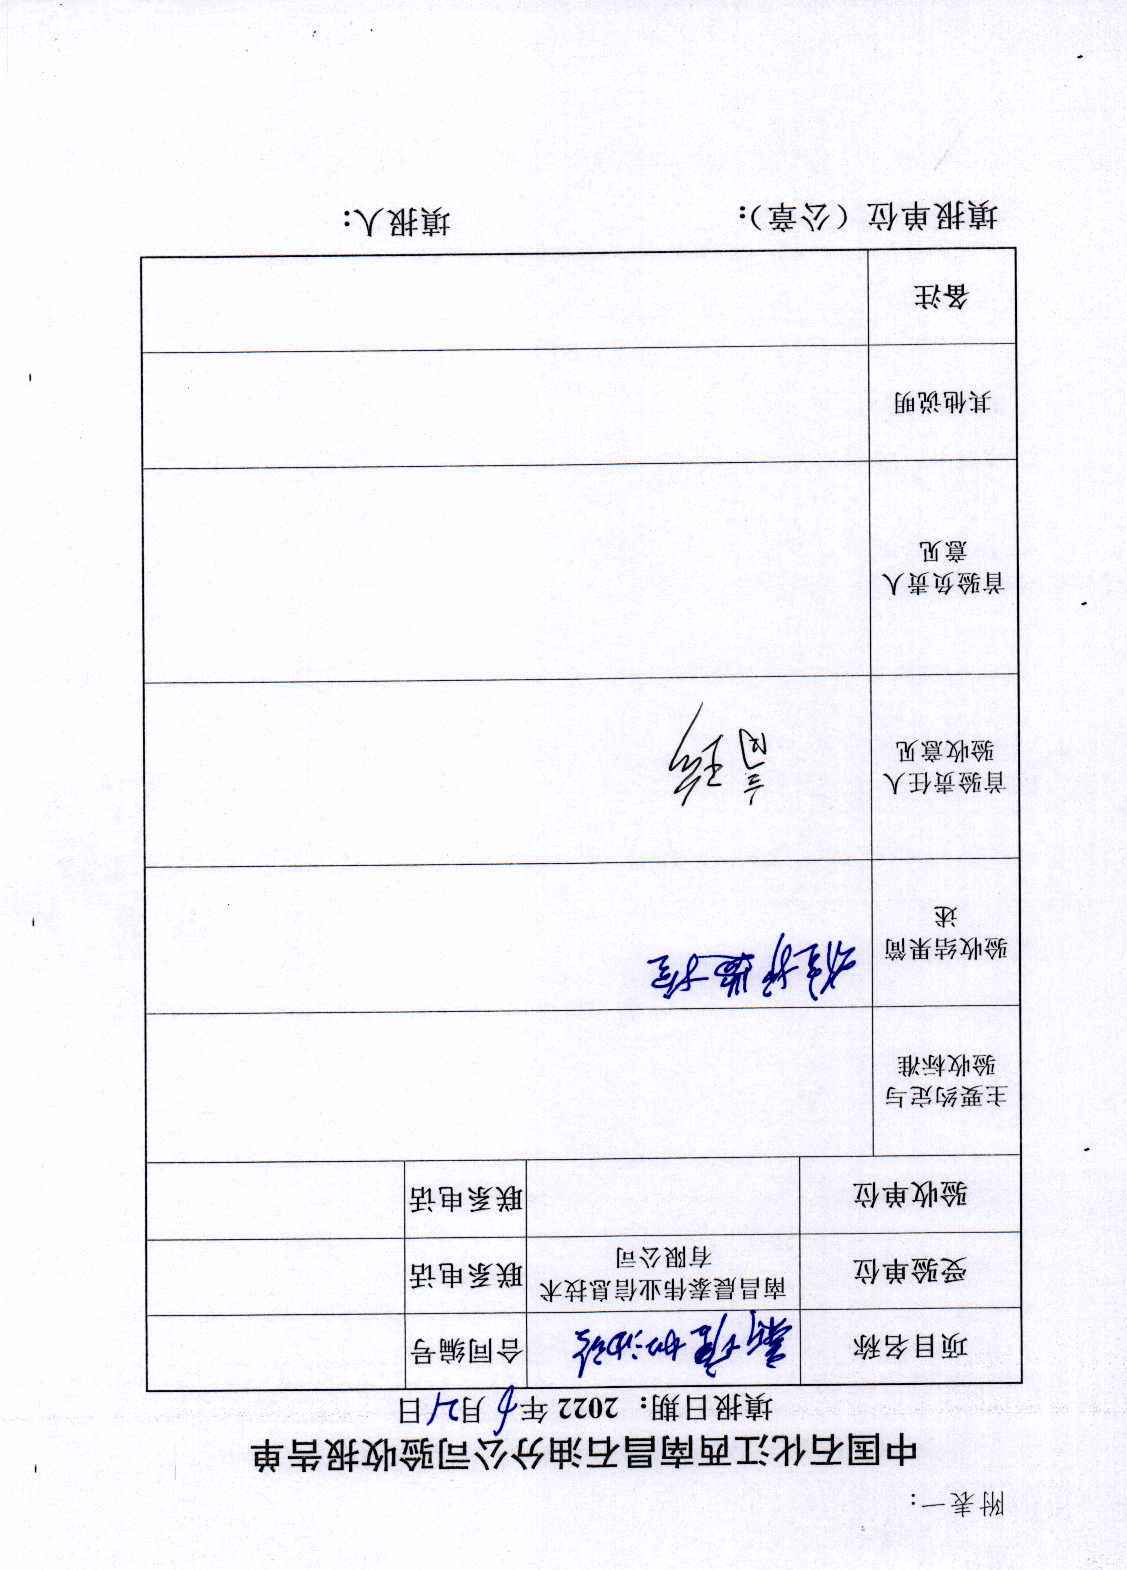 附表一：
中国石化江西南昌石油分公司验收报告单
填报日期：2022年 月 日
项目名称 加油站 合同编号
受验单位 南昌晨泰伟业信息技术有限公司 联系电话
验收单位 联系电话
主要约定与
验收标准
验收结果简
述
首验责任人
验收意见
首验负责人
意见
其他说明
备注
填报单位（公章）： 填报人：